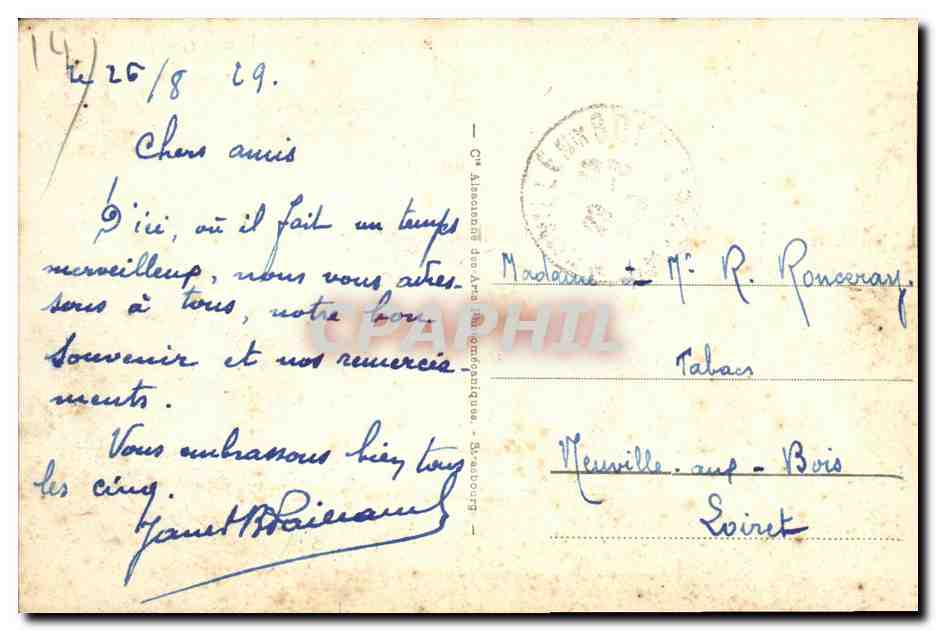 14)
le 26/8 29.
Chers amis
D'ici, où il fait un temps
merveilleux, nous vous adres-
sons à tous, notre bon
souvenir et nos remercie-
ments.
Vous embrassons bien tous
les cinq.
Cie Alsacienne des Arts Photomécaniques. - Strasbourg
Madame et Mr R. Ronceray.
Tabacs
Neuville-aux-Bois
Loiret
CPAPHIL